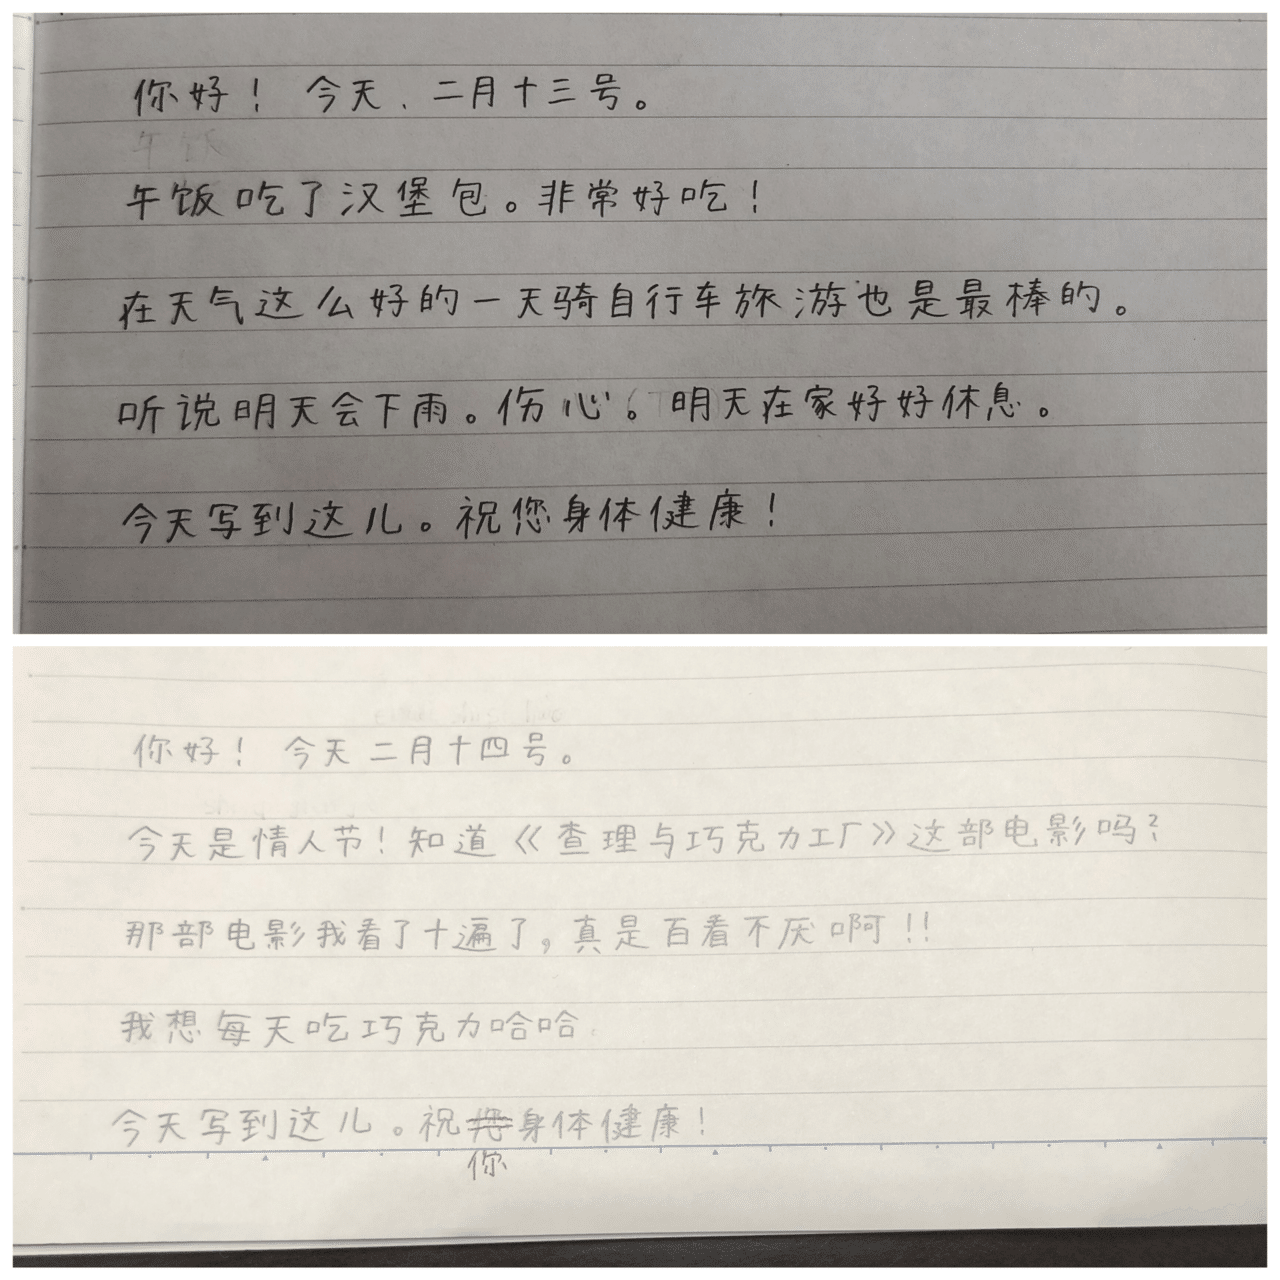 你好！ 今天、二月十三号。
午饭
午饭吃了汉堡包。非常好吃！
在天气这么好的一天骑自行车旅游也是最棒的。
听说明天会下雨。伤心。明天在家好好休息。
今天写到这儿。祝您身体健康！
你好！ 今天二月十四号。
今天是情人节！知道《查理与巧克力工厂》这部电影吗？
那部电影我看了十遍了，真是百看不厌啊！！
我想每天吃巧克力哈哈
今天写到这儿。祝您身体健康！
你